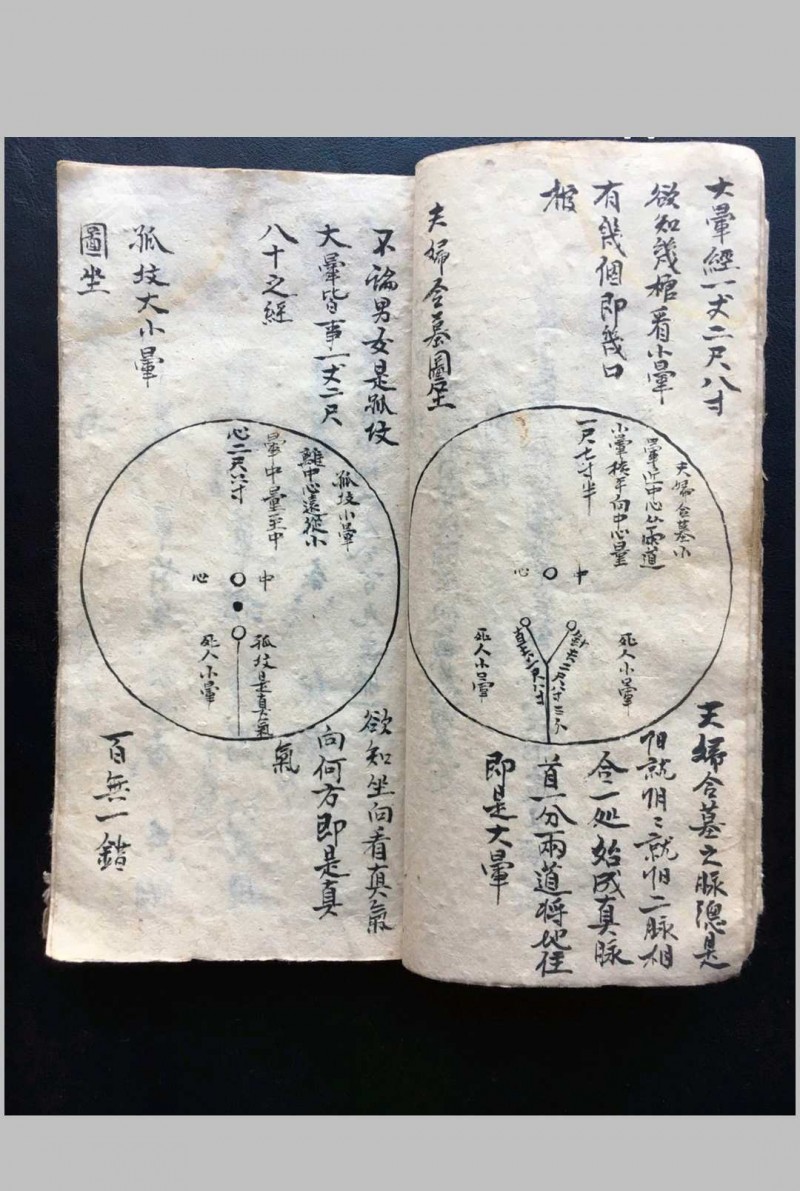 大暈經一丈二尺八寸
欲知幾棺看小暈
有幾個即幾口
棺
夫婦合墓圖坐
夫婦合墓小
暈近中心分兩道
小暈後平向中心量
一尺七寸半
中
心
死人小暈
死人小暈
直去二尺八寸
夫婦合墓之脉總是
阳就阴阴就阳二脉相
合一处始成真脉
首一分兩道将地住
即是大暈
不論男女是孤坟
大暈皆事一丈二尺
八十之經
孤坟大小暈
圖坐
孤坟小暈
離中心遠從小
暈中量至中
心二尺六寸
中
心
孤坟是真氣
死人小暈
欲知坐向看真氣
向何方即是真
氣
百無一錯